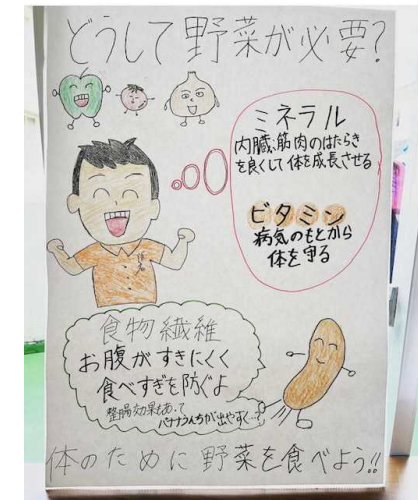 どうして野菜が必要?
ミネラル
内臓、筋肉のはたらき
を良くして体を成長させる
ビタミン
病気のもとから
体を守る
食物繊維
お腹がすきにくく
食べすぎを防ぐよ
整腸効果もあって
バナナうんちが出やすく…
体のために野菜を食べよう!!